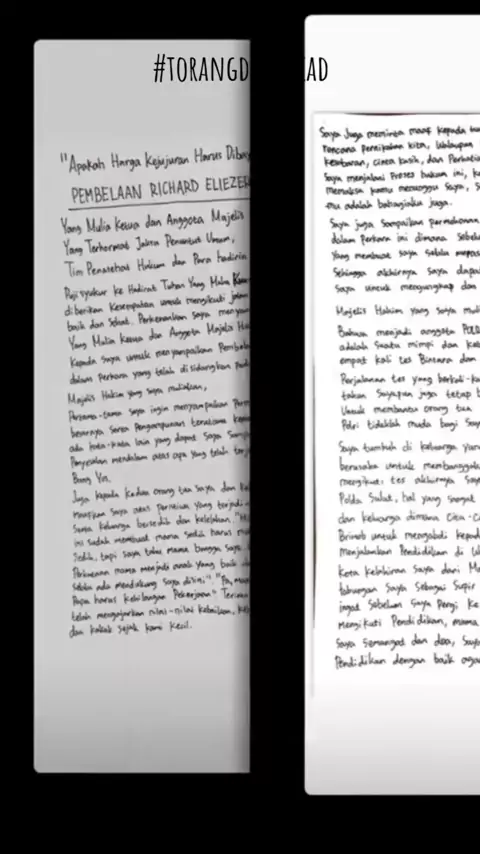 #TORANGD AD
"Apakah Harga Kejujuran Harus Dibay
PEMBELAAN RICHARD ELIEZER
Yang Mulia Ketua dan Anggota Majelis
Yang Terhormat Jaksa Penuntut Umum,
Tim Penasehat Hukum dan Para hadirin
Puji syukur ke Hadirat Tuhan Yang Maha
diberikan Kesempatan untuk mengikuti jalan
baik dan Sehat. Perkenankan saya menyam
Yang Mulia Ketua dan Anggota Majelis Ha
Kepada saya untuk menyampaikan Pembel
dalam perkara yang telah disidangkan pada
Majelis Hakim yang saya muliakan,
Pertama-tama saya ingin menyampaikan Perm
besarnya serta Pengampunan terutama kepada
ada kata-kata lain yang dapat saya Samp
Penyesalan mendalam atas apa yang telah terj
Bang Yos.
Juga kepada Kedua orang tua saya dan
Maafkan saya atas peristiwa yang terjadi
serta keluarga bersedih dan kelelahan.
ini sudah membuat mama sedih harus
Sedih, tapi saya tahu mama bangga saya
Perkataan mama menjadi anak yang baik
selalu ada mendukung saya disini". "Pa, maaf
Papa harus kehilangan Pekerjaan" Terima
telah mengajarkan nilai-nilai kebaikan, ke
dan kakak sejak kami kecil.
Saya juga meminta maaf kepada tun
rencana pernikahan kita, walaupun
kesabaran, cinta kasih, dan Perhatia
Saya menjalani Proses hukum ini, k
memaksa kamu menunggu saya, S
mu adalah bahagiaku juga.
Saya juga sampaikan permohonan
dalam perkara ini dimana Sebel
Yang membuat saya selalu merasa
Sehingga akhirnya saya dapa
saya untuk mengungkap dan
Majelis Hakim yang saya muli
Bahwa menjadi anggota POL
adalah suatu mimpi dan ke
empat kali tes Bintara dan
Perjalanan tes yang berkali-ka
tahun sayapun juga tetap b
Untuk membantu orang tua
Polri tidaklah mudah bagi Say
Saya tumbuh di keluarga yan
berusaha untuk membanggaka
mengikuti tes akhirnya Saya
Polda Sulut, hal yang sangat
dan keluarga dimana cita-ci
Brimob untuk mengabdi kepad
Menjalankan Pendidikan di W
Kota Kelahiran saya dari M
tabungan saya Sebagai Supir
ingat sebelum saya Pergi Ke
Mengikuti Pendidikan, mama
saya semangat dan doa, Say
Pendidikan dengan baik agar